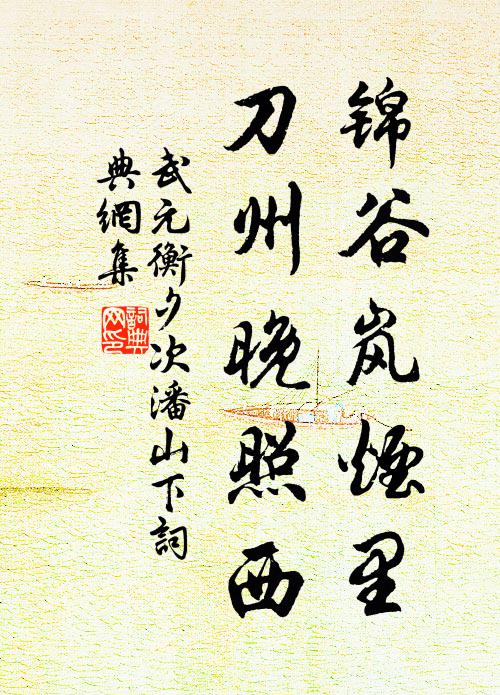 锦谷岚烟里
刀州晚照西
武元衡夕次潘山下詞
典網集
詞典
网印